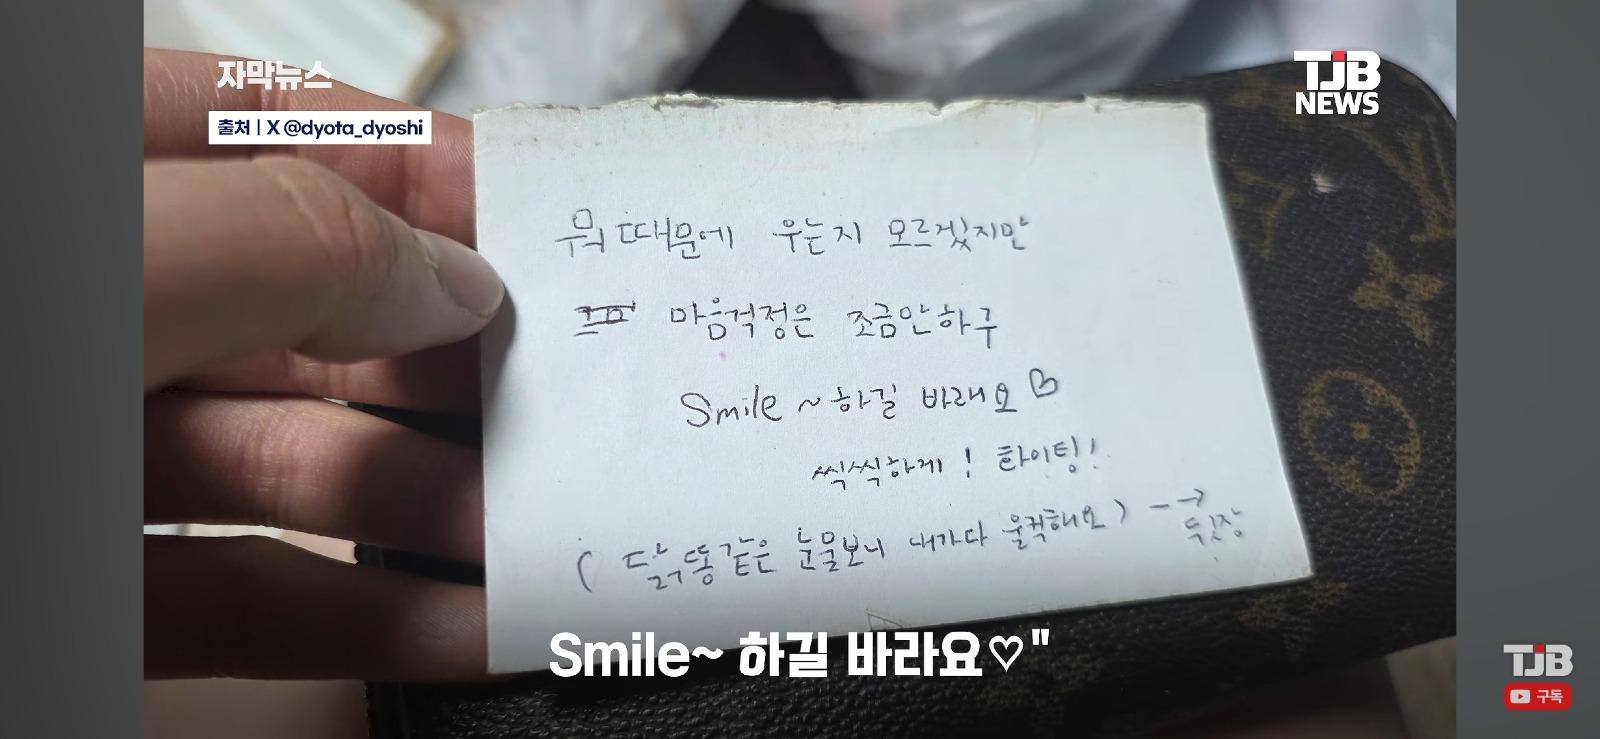 자막뉴스
출처 | X @dyota_dyoshi
TJB
NEWS
뭐때문에 우는지 모르겠지만
마음걱정은 조금만하구
Smile ~ 하길 바래요♡
씩씩하게! 화이팅!
( 닭똥같은 눈물보니 내가다 울컥해요 ) - →
뒷장
Smile~ 하길 바라요♡"
TJB
구독